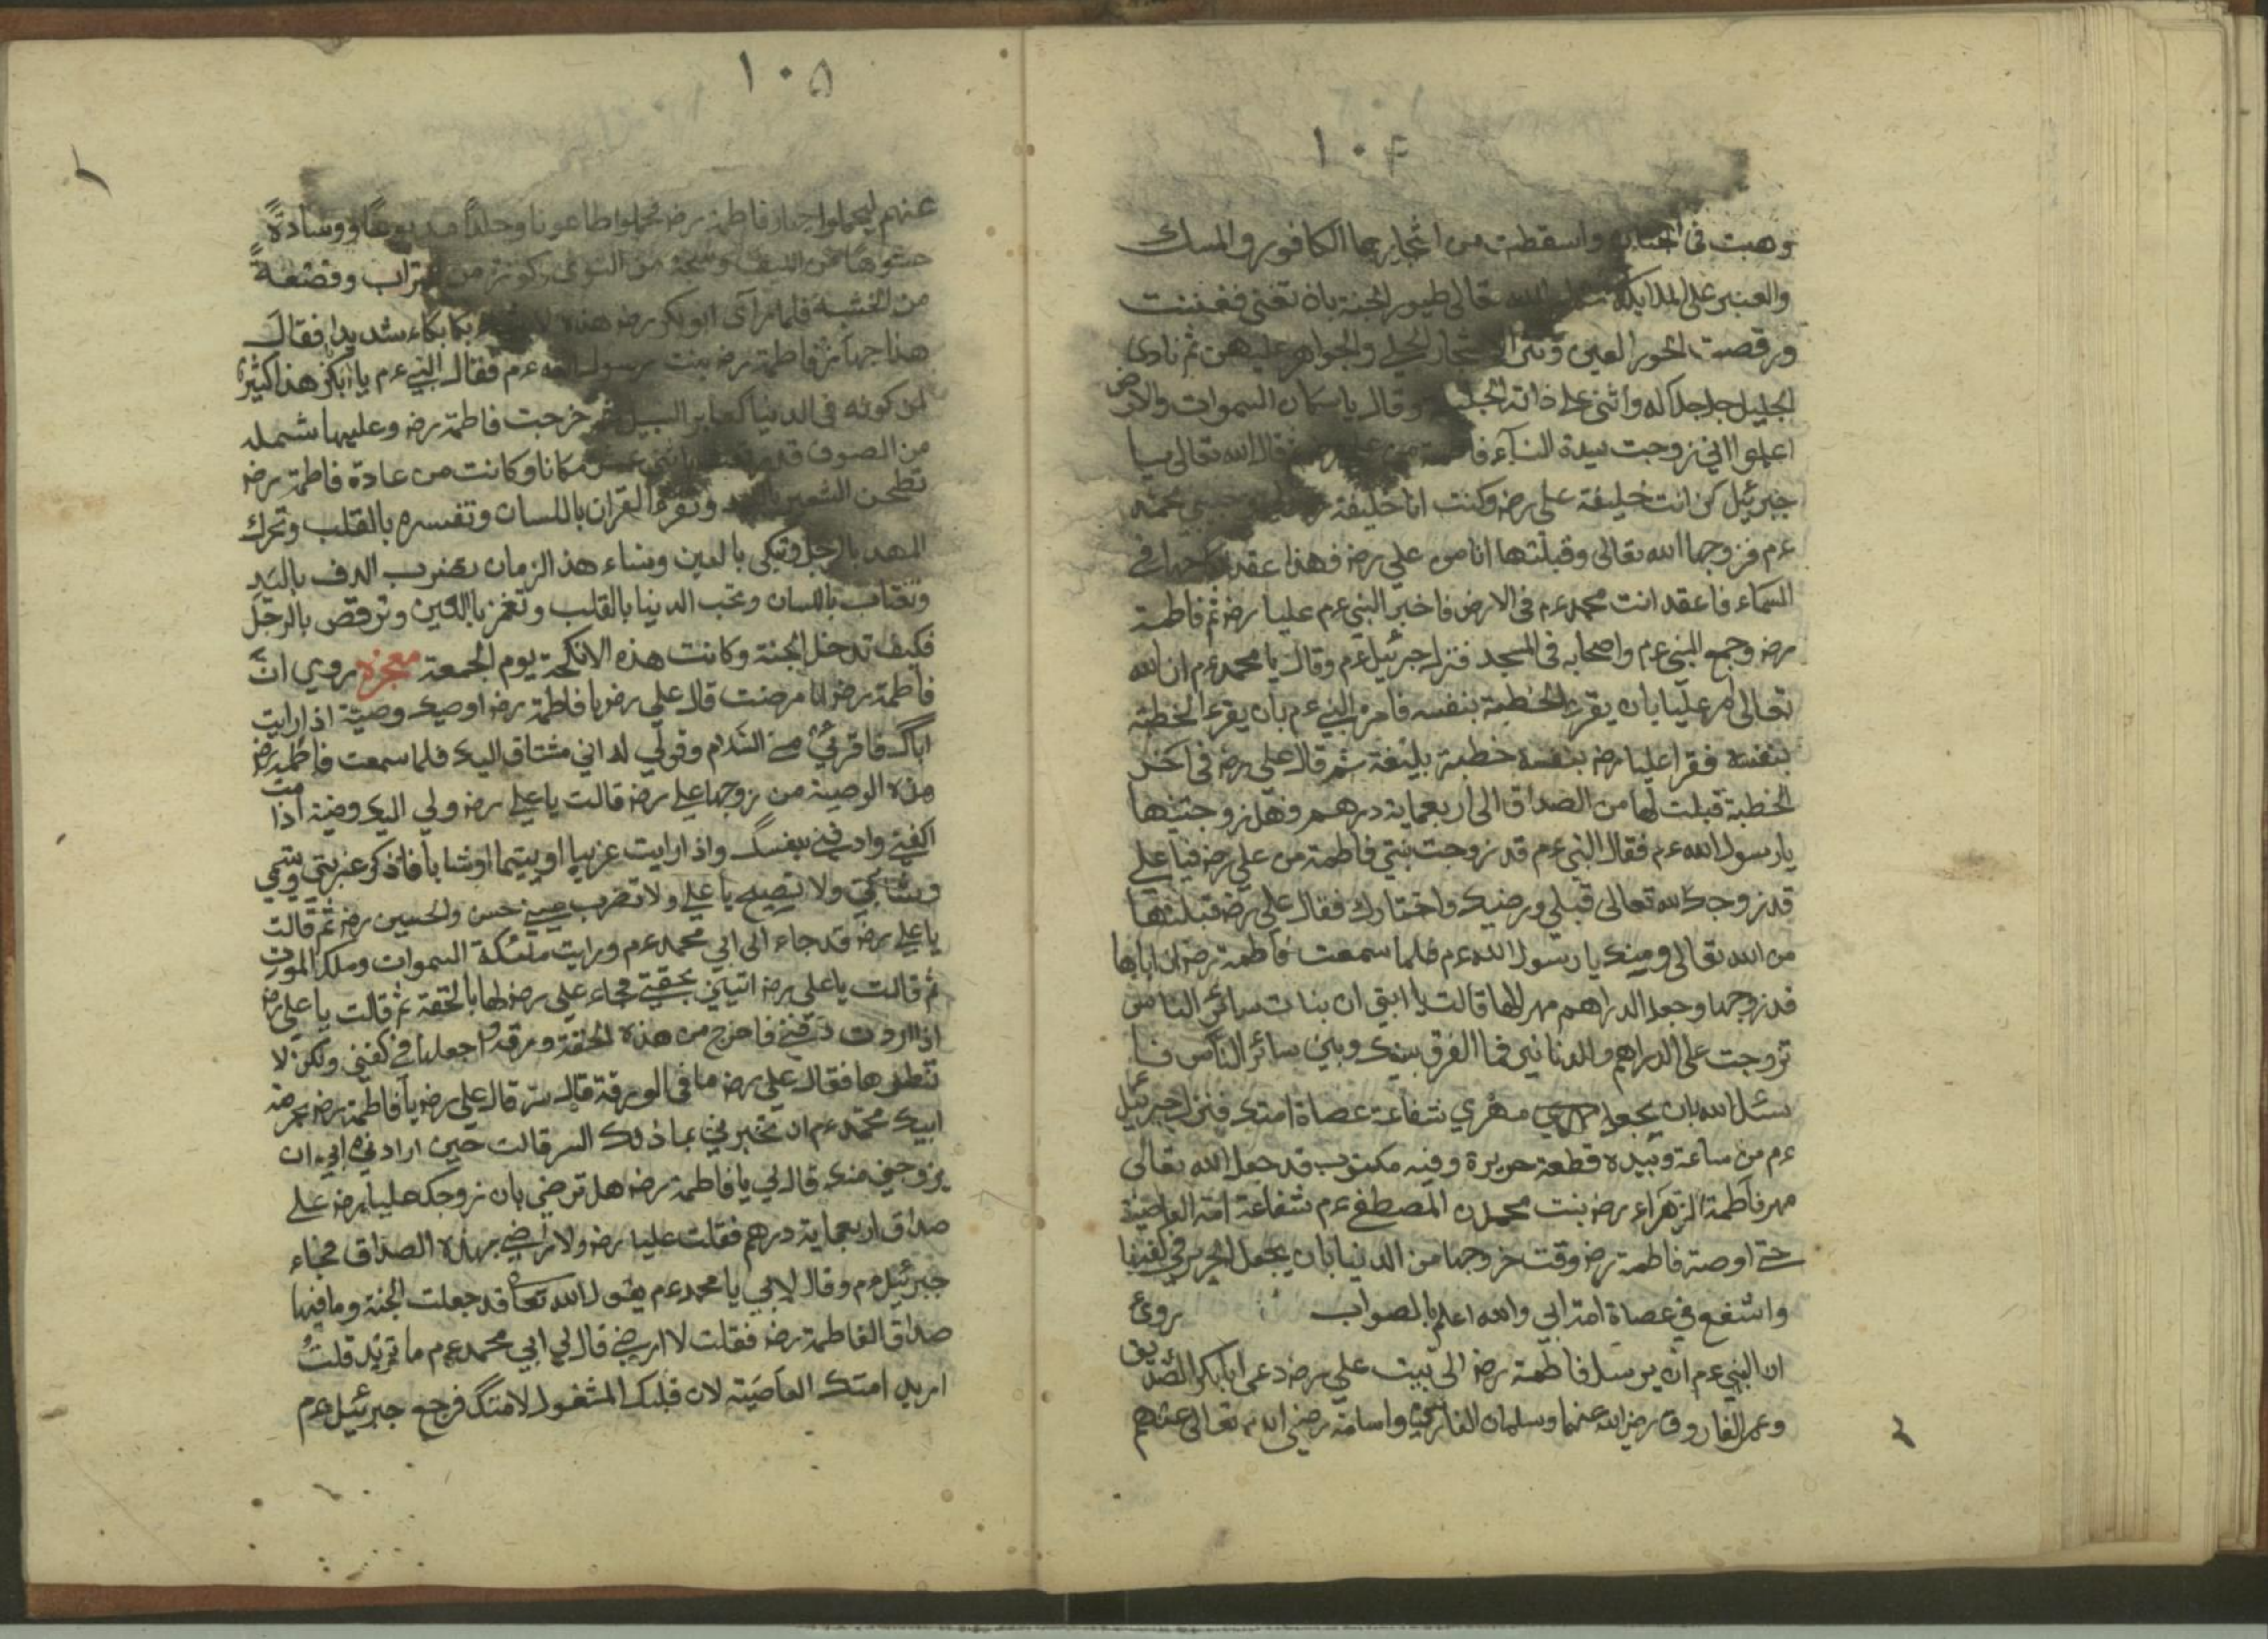 ١٠٤
وهبت في واسقطت من اشجارها الكافور والمسك
والعنبر على الملايكة تعالى طيور الجنة بان تغني فغننت
ورقصت الحور العين والجواهر عليهن ثم نادى
الجليل جل جلاله واثنى على ذاته وقال يا سكان السموات والارض
اعلموا اني زوجت سيدة النساء من قال الله تعالى يا
جبرئيل كن انت خليفة علي رض وكنت انا خليفة
ءم فزوجها الله تعالى وقبلتها انا من علي رض فهذا عقد في
السماء فاعقد انت محمد ءم في الارض فاخبر النبي ءم عليا رض ثم فاطمة
رض وجمع النبي ءم واصحابه في المسجد فنزل جبرئيل ءم وقال يا محمد ءم ان الله
تعالى امر عليا بان يقرء الخطبة بنفسه فامره النبي ءم بان يقرء الخطبة
بنفسه فقرا عليا رض بنفسه خطبة بليغة ثم قال علي رض في اخر
الخطبة قبلت لها من الصداق الى اربعماية درهم وهل زوجتنيها
يا رسول الله ءم فقال النبي ءم قد زوجت بنتي فاطمة من علي رض فيا علي
قد زوجك الله تعالى قبلي ورضيك واختارك فقال علي رض قبلتها
من الله تعالى ومنك يا رسول الله ءم فلما سمعت فاطمة رض ان اباها
قد زوجها وجعل الدراهم مهرا لها قالت يا ابتي ان بنات سائر الناس
تزوجت على الدراهم والدنانير فما الفرق بينك وبين سائر الناس فا
سئل الله بان يجعل مهري شفاعة عصاة امتك فنزل جبرئيل
ءم من ساعة وبيده قطعة حريرة وفيه مكتوب قد جعل الله تعالى
مهر فاطمة الزهراء رض بنت محمدن المصطفى ءم شفاعة امته العاصية
حتى اوصت فاطمة رض وقت خروجها من الدنيا بان يجعل الحرير في كفنها
واشفع في عصاة امة ابي والله اعلم بالصواب روي
ان النبي ءم ان يرسل فاطمة رض الى بيت علي رض دعى ابابكر الصديق
وعمر الفاروق رضي الله عنهما وسلمان الفارسي واسامة رضي الله تعالى عنهم
١٠٥
عنهم ليحملوا جهاز فاطمة رض فحملوا طاعونا وجلدا ووسادة
حشوها من الليف من تراب وقصعة
من الخشبة فلما رآى ابو بكر رض هذه بكا بكاء شديدا فقال
هذا جهاز فاطمة رض بنت رسول الله ءم فقال النبي ءم يا ابابكر هذا كثير
لمن كونه في الدنيا كعابر السبيل خرجت فاطمة رض وعليها شمله
من الصوف قد مكانا وكانت من عادة فاطمة رض
تطحن الشعير وتقرء القران باللسان وتفسره بالقلب وتحرك
المهد بالرجل وتبكي بالعين ونساء هذ الزمان تضرب الدف باليد
وتغتاب باللسان وتحب الدنيا بالقلب وتغمز بالعين وترقص بالرجل
فكيف تدخل الجنة وكانت هذه الانكحة يوم الجمعة معجزه روي ان
فاطمة رض لما مرضت قال علي رض يا فاطمة رض اوصيك وصية اذا رايت
اباك فاقرئي مني السلام وقولي له اني مشتاق اليك فلما سمعت فاطمة رض
هذه الوصية من زوجها علي رض قالت يا علي رض ولي اليك وصية اذا مت
اكفني وادفني بنفسك واذا رايت غريبا او يتيما او شابا فاذكر غربتي ويتمي
وشبابي ولا تصيح يا علي ولا تضرب حسن والحسين رض ثم قالت
يا علي رض قد جاء الى ابي محمد ءم ورايت ملئكة السموات وملك الموت
ثم قالت يا علي رض اتياني بحقتي فجاء علي رض لها بالحقة ثم قالت يا علي رض
اذا اردت دفني فاخرج من هذه الحقة ورقة واجعلها في كفني ولكن لا
تنظر ها فقال علي رض ما في الورقة قالت سر قال علي رض يا فاطمة رض بحرمة
ابيك محمد ءم ان تخبريني بما ذلك السر قالت حين ارادني ابي ان
يزوجني منك قال لي يا فاطمة رض هل ترضي بان زوجك عليا رض على
صداق اربعماية درهم فقلت عليا رض ولا ارضى بهذه الصداق فجاء
جبرئيل ءم وقال لابي يا محمد ءم يقول الله تعا قد جعلت الجنة وما فيها
صداق الفاطمة رض فقلت لا ارضى قال لي ابي محمد ءم ما تريد قلت
اريد امتك العاصية لان قلبك المشغول لامتك فرجع جبرئيل ءم